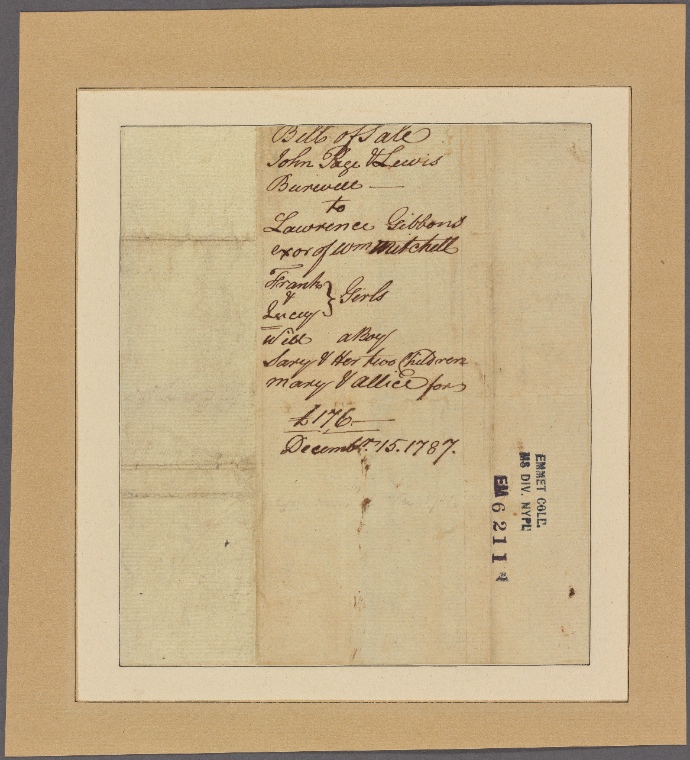 Bill of Sale
John Page & Lewis
Burwell —
to
Lawrence Gibbons
exor of Wm Mitchell
Frank
& } Girls
Lucy
Will a Boy
Sary & Her two Children
mary & allice for
£176 —
Decembr. 15. 1787.
EMMET COLL.
MS DIV. NYPL
EM 6211